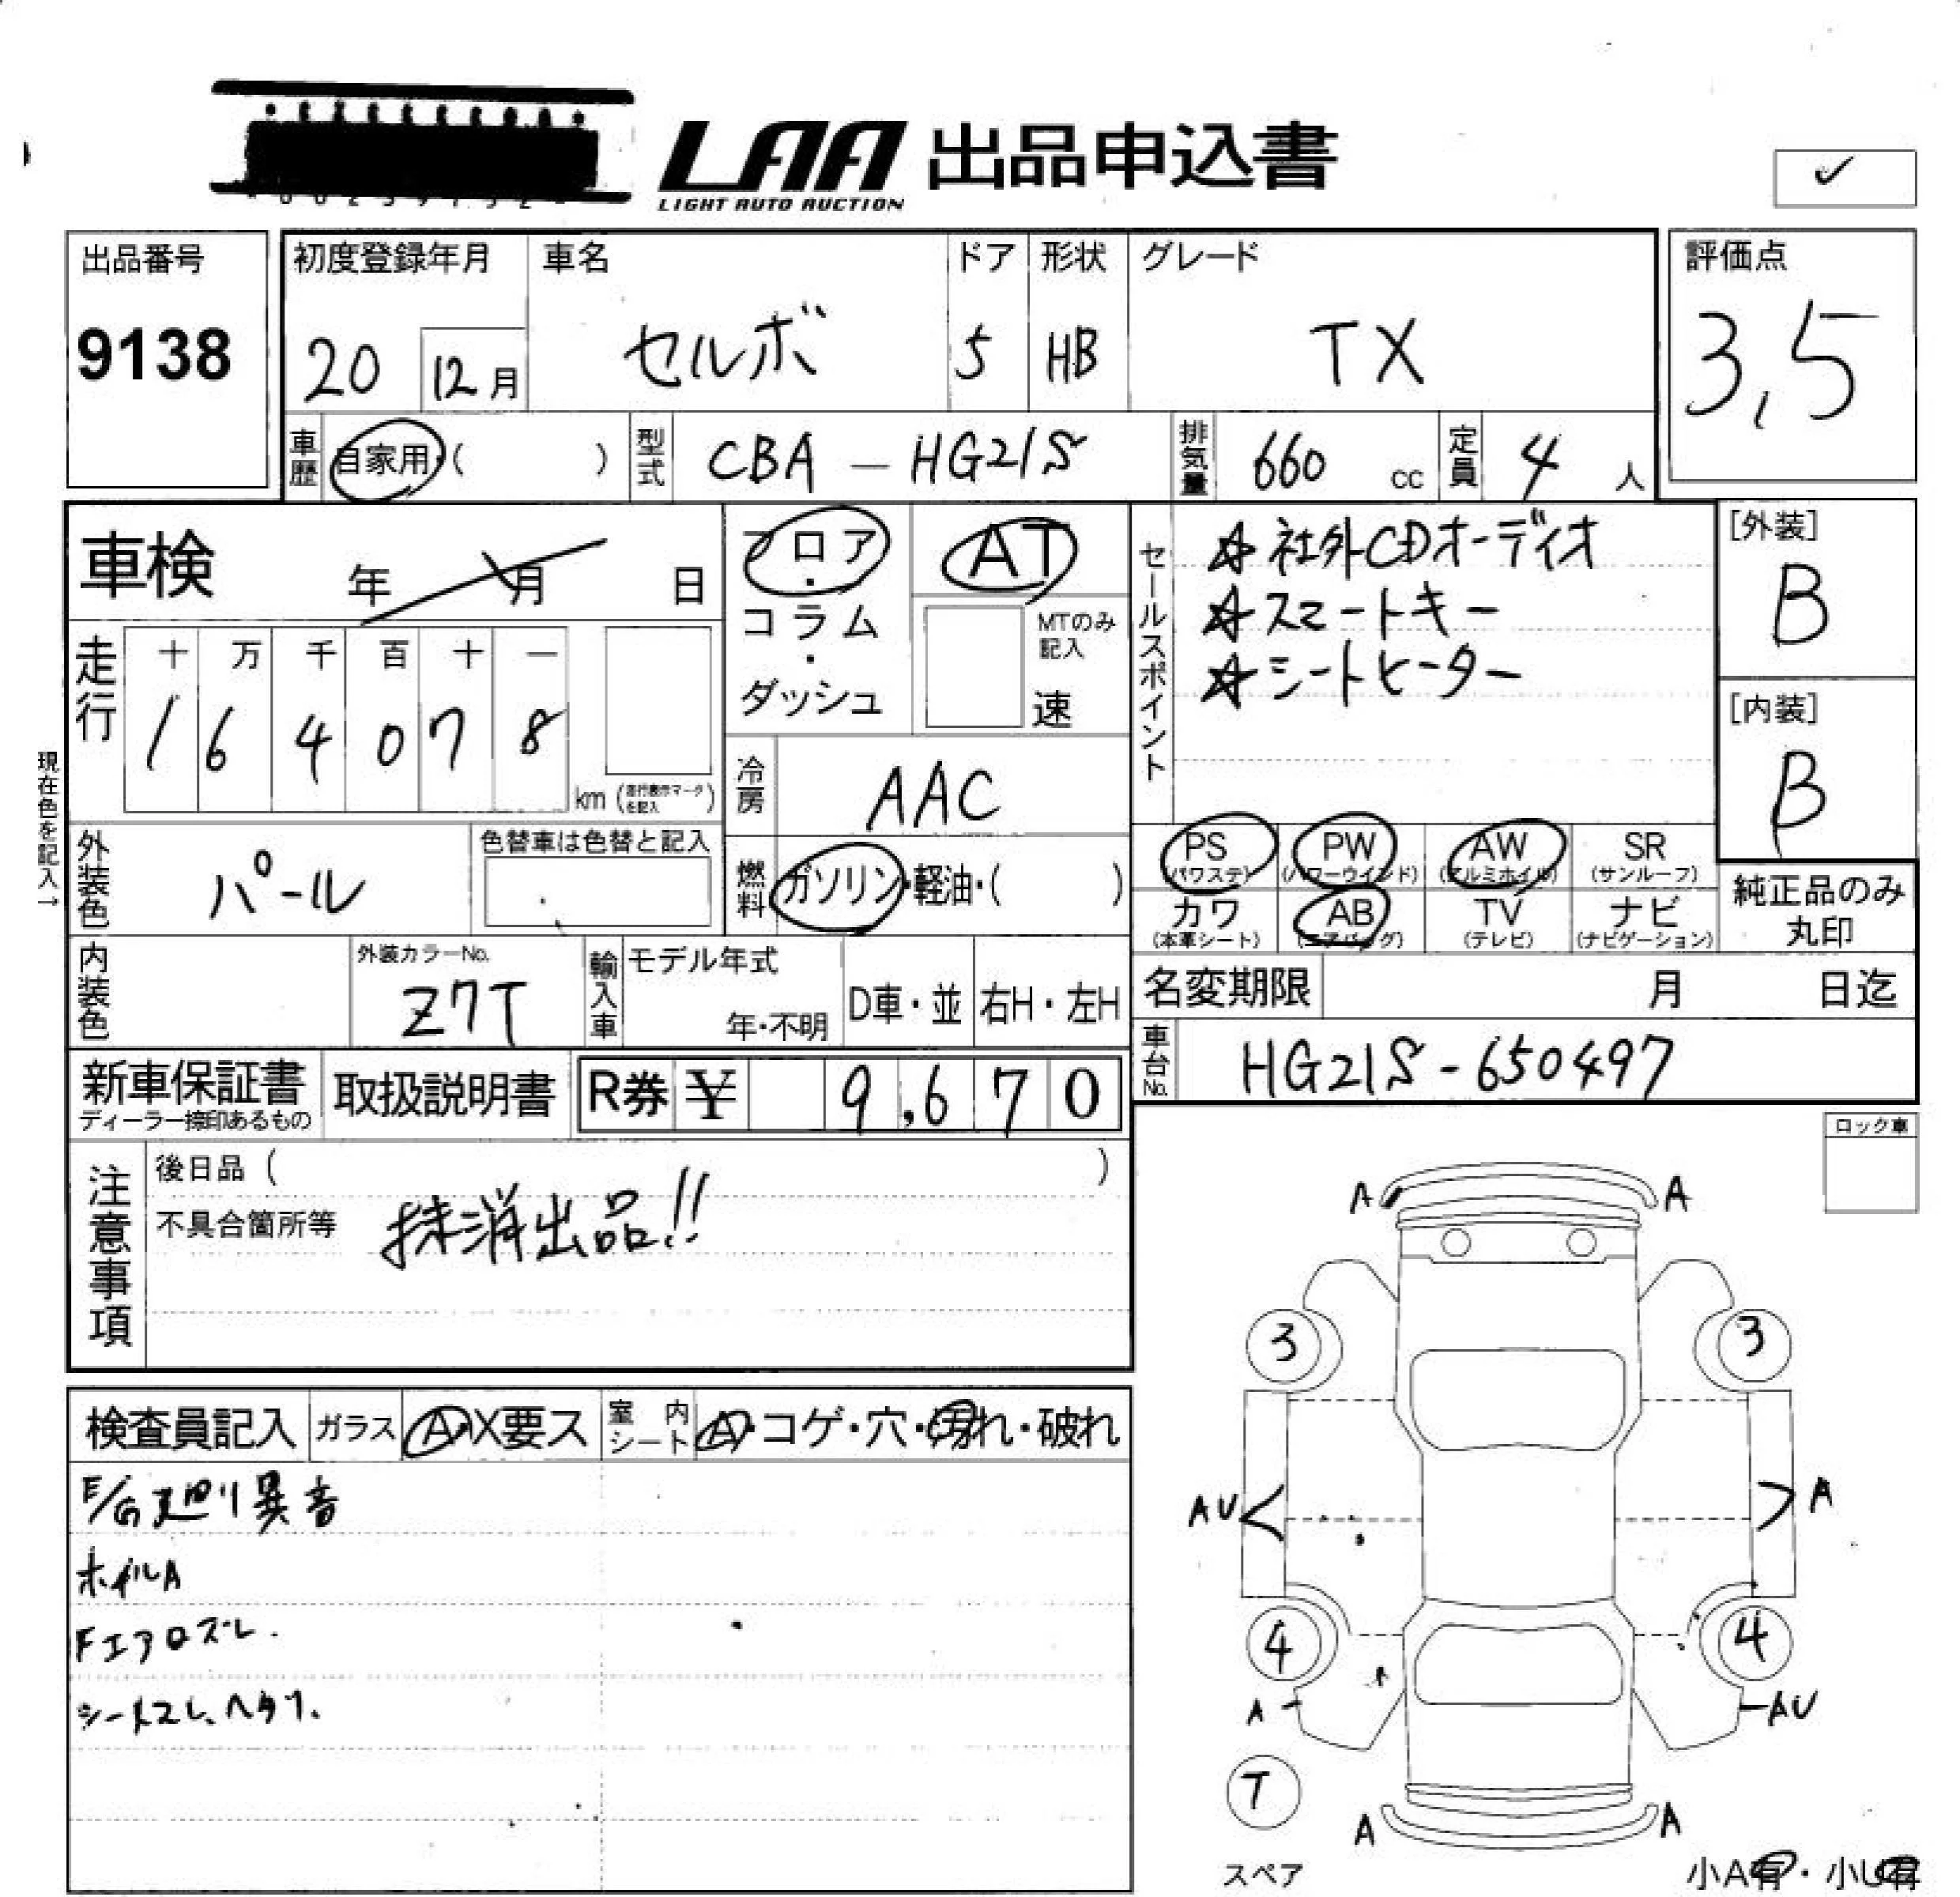 LAA 出品申込書
LIGHT AUTO AUCTION
✓
出品番号
9138
初度登録年月 車名 ドア 形状 グレード
20 12月 セルボ 5 HB TX
評価点
3,5
車歴 自家用・( ) 型式 CBA - HG21S 排気量 660 cc 定員 4 人
車検 年 月 日
走行 十 万 千 百 十 一
1 6 4 0 7 8
km (走行表示マークを記入)
現在色を記入→
フロア・コラム・ダッシュ
AT
MTのみ記入
速
冷房 AAC
セールスポイント
☆社外CDオーディオ
☆スマートキー
☆シートヒーター
[外装]
B
[内装]
B
外装色 パール
色替車は色替と記入
燃料 ガソリン・軽油・( )
PS (パワステ) PW (パワーウインド) AW (アルミホイル) SR (サンルーフ)
カワ (本革シート) AB (エアバッグ) TV (テレビ) ナビ (ナビゲーション)
純正品のみ
丸印
内装色
外装カラーNo.
Z7T
輸入車 モデル年式
年・不明 D車・並 右H・左H
名変期限 月 日迄
車台No. HG21S-650497
新車保証書 取扱説明書 R券 ¥ 9,670
ディーラー捺印あるもの
注意事項
後日品 ( )
不具合箇所等 抹消出品!!
ロック車
検査員記入 ガラス A・X要ス 室内シート A・コゲ・穴・汚れ・破れ
E/G廻り異音
ホイルA
Fエアロズレ.
シートスレ、ヘタリ.
A A
3 3
AU A
4 4
A AU
T
A A
スペア
小A有・小U有